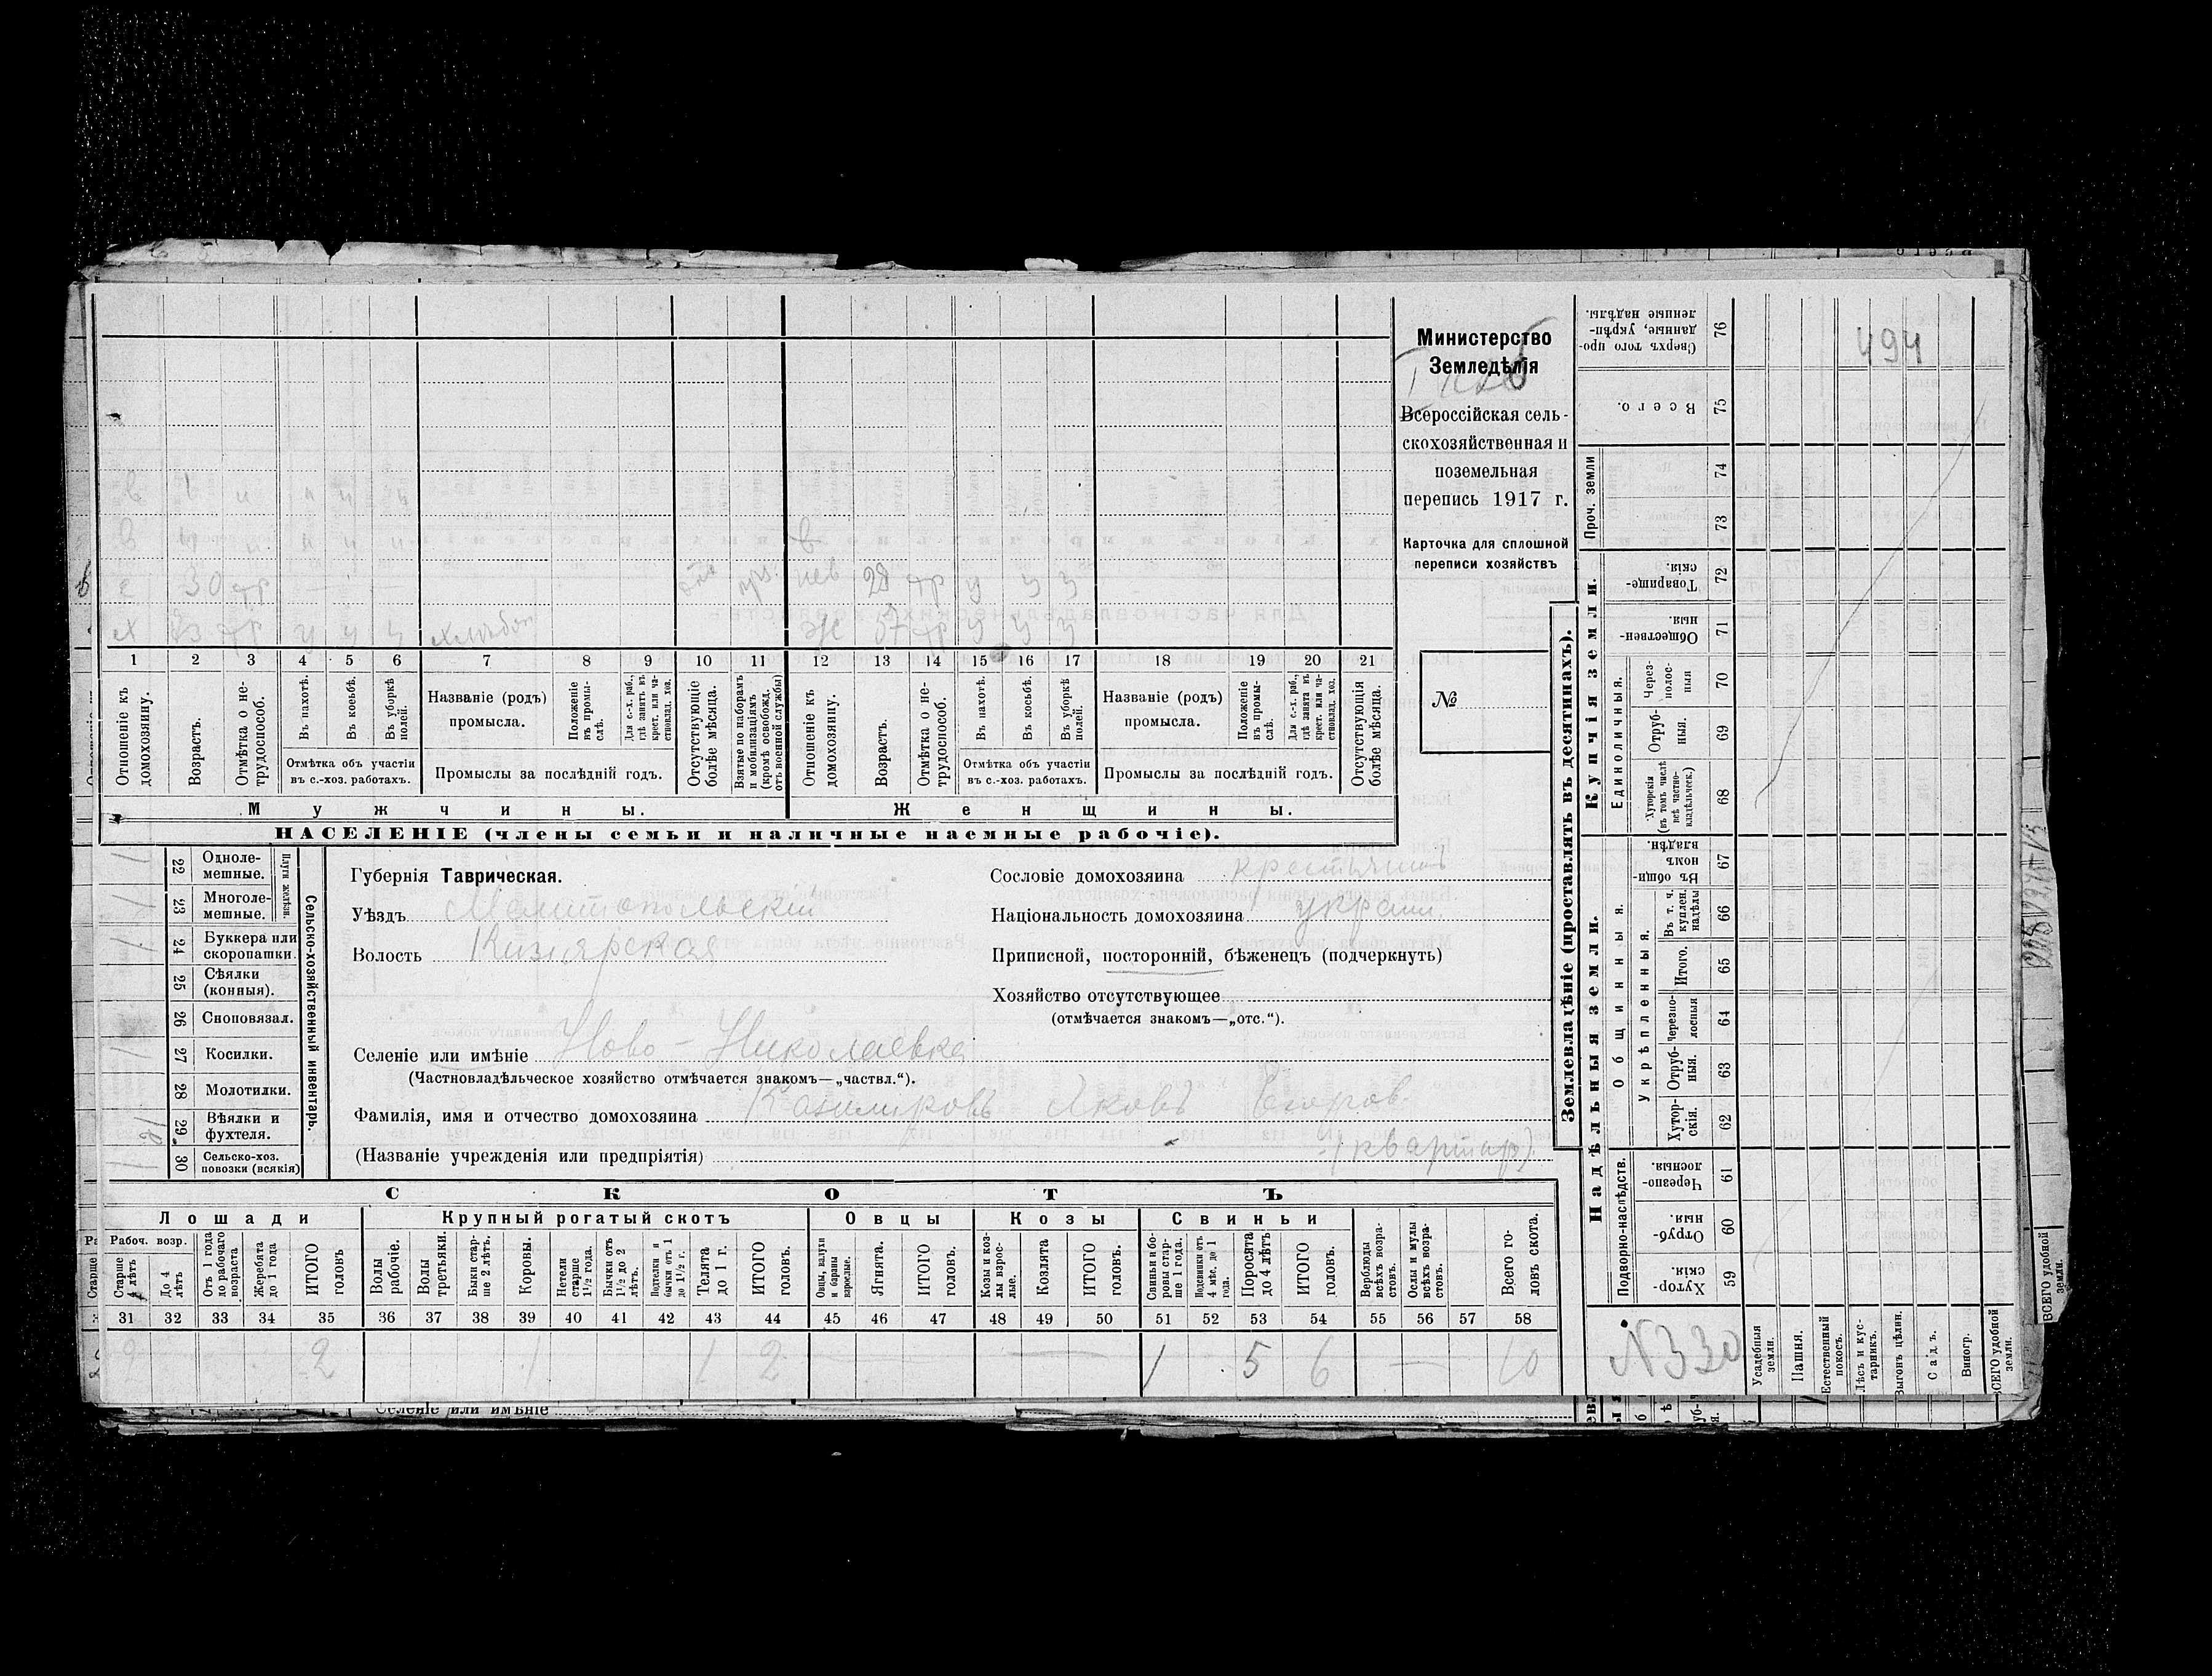 Министерство
Земледѣлія
Всероссійская сель-
скохозяйственная и
поземельная
перепись 1917 г.
Карточка для сплошной
переписи хозяйствъ
№
х 30 тр — — — 28 тр
тр ж 57 тр
1 2 3 4 5 6 7 8 9 10 11 12 13 14 15 16 17 18 19 20 21
Отношеніе къ домохозяину.
Возрастъ.
Отмѣтка о не-трудоспособ.
Въ пахотѣ.
Въ косьбѣ.
Въ уборкѣ полей.
Отмѣтка объ участіи
въ с.-хоз. работахъ.
Названіе (родъ)
промысла.
Положеніе въ промы-слѣ.
Для с.-х. раб., гдѣ занятъ въ крест. или ча-стновлад. хоз.
Промыслы за послѣдній годъ.
Отсутствующіе болѣе мѣсяца.
Взятые по наборамъ и мобилизаціямъ (кромѣ освобожд. отъ военной службы)
Отношеніе къ домохозяину.
Возрастъ.
Отмѣтка о не-трудоспособ.
Въ пахотѣ.
Въ косьбѣ.
Въ уборкѣ полей.
Отмѣтка объ участіи
въ с.-хоз. работахъ.
Названіе (родъ)
промысла.
Положеніе въ промы-слѣ.
Для с.-х. раб., гдѣ занята въ крест. или ча-стновлад. хоз.
Промыслы за послѣдній годъ.
Отсутствующія болѣе мѣсяца.
Мужчины.
Женщины.
НАСЕЛЕНІЕ (члены семьи и наличные наемные рабочіе).
Сельско-хозяйственный инвентарь.
Плуги желѣзн.
22 Одноле-мешные.
23 Многоле-мешные.
24 Буккера или скоропашки.
25 Сѣялки (конныя).
26 Сноповязал.
27 Косилки.
28 Молотилки.
29 Вѣялки и фухтеля.
30 Сельско-хоз. повозки (всякія)
Губернія Таврическая.
Уѣздъ Мелитопольскій
Волость Кизіярская
Селеніе или имѣніе Ново-Николаевка
(Частновладѣльческое хозяйство отмѣчается знакомъ—„частвл.“).
Фамилія, имя и отчество домохозяина Казимировъ Яковъ Егоров.
(Названіе учрежденія или предпріятія) (квартир)
Сословіе домохозяина крестьянинъ
Національность домохозяина украин
Приписной, посторонній, бѣженецъ (подчеркнуть)
Хозяйство отсутствующее
(отмѣчается знакомъ—„отс.“).
СКОТЪ
Лошади
Крупный рогатый скотъ
Овцы
Козы
Свиньи
Рабоч. возр.
Старше 4 лѣтъ
До 4 лѣтъ
Отъ 1 года до рабочаго возраста
Жеребята до 1 года
ИТОГО головъ
Волы рабочіе.
Волы третьяки.
Быки стар-ше 2 лѣтъ.
Коровы.
Нетели старше 1½ года.
Бычки отъ 1½ до 2 лѣтъ.
Подтелки и бычки отъ 1 до 1½ г.
Телята до 1 г.
ИТОГО головъ.
Овцы, валухи и бараны взрослые.
Ягнята.
ИТОГО головъ.
Козы и коз-лы взрос-лые.
Козлята
ИТОГО головъ.
Свиньи и бо-ровы стар-ше 1 года.
Подсвинки отъ 4 мѣс. до 1 года.
Поросята до 4 лѣтъ
ИТОГО головъ.
Верблюды всѣхъ возра-стовъ.
Ослы и мулы всѣхъ возра-стовъ.
Всего го-ловъ скота.
31 32 33 34 35 36 37 38 39 40 41 42 43 44 45 46 47 48 49 50 51 52 53 54 55 56 57 58
2 2 1 1 2 — — 1 5 6 — 10
Землевладѣніе (проставлять въ десятинахъ).
Надѣльныя земли.
Купчія земли.
Подворно-наслѣдств.
Общинныя.
Укрѣпленныя.
Единоличныя.
Проч. земли
Хутор-скія. 59
Отруб-ныя. 60
Черезпо-лосныя. 61
Хутор-скія. 62
Отруб-ныя. 63
Черезпо-лосныя 64
Итого. 65
Въ т. ч. куплен. надѣлы 66
Въ общи-номъ владѣн. 67
Хуторскія (въ томъ числѣ всѣ частно-владѣльческ.) 68
Отруб-ныя. 69
Через-полос-ныя 70
Обществен-ныя. 71
Товарище-скія. 72
73
74
Всего. 75
Сверхъ того про-данные, укрѣп-ленные надѣлы. 76
494
N330
Усадебныя земли.
Пашня.
Естественный покосъ.
Лѣсъ и кус-тарникъ.
Выгонъ цѣлин.
Садъ.
Виногр.
ВСЕГО удобной земли.
ВСЕГО удобной земли.
Селеніе или имѣніе